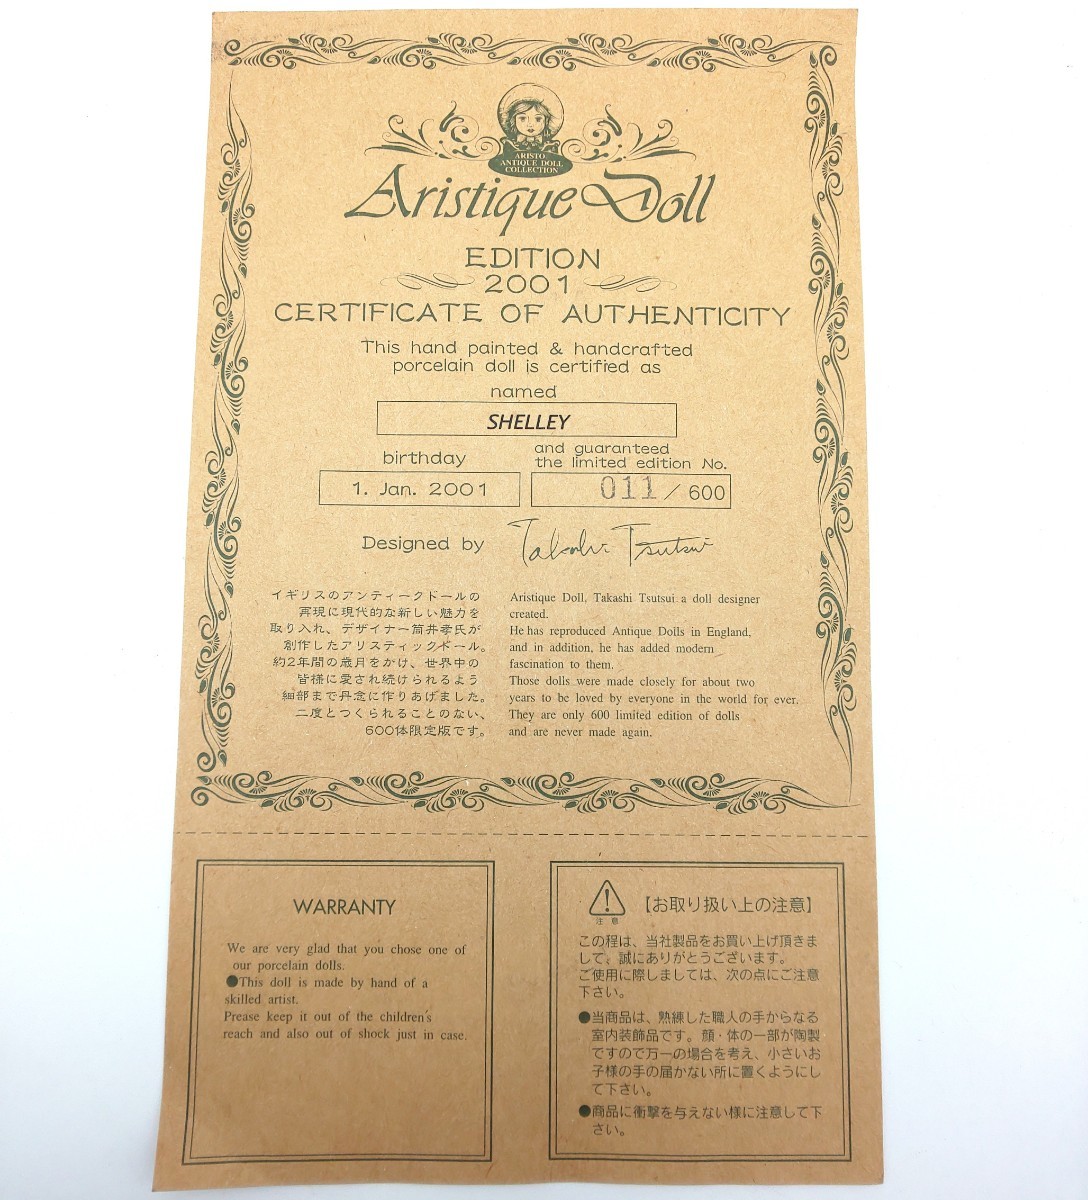 ARISTO
ANTIQUE DOLL
COLLECTION
Aristique Doll
EDITION
2001
CERTIFICATE OF AUTHENTICITY
This hand painted & handcrafted
porcelain doll is certified as
named
SHELLEY
birthday
and guaranteed
the limited edition No.
1. Jan. 2001
011 / 600
Designed by
Takashi Tsutsui
イギリスのアンティークドールの
再現に現代的な新しい魅力を
取り入れ、デザイナー筒井孝氏が
創作したアリスティックドール。
約2年間の歳月をかけ、世界中の
皆様に愛され続けられるよう
細部まで丹念に作りあげました。
二度とつくられることのない、
600体限定版です。
Aristique Doll, Takashi Tsutsui a doll designer
created.
He has reproduced Antique Dolls in England,
and in addition, he has added modern
fascination to them.
Those dolls were made closely for about two
years to be loved by everyone in the world for ever.
They are only 600 limited edition of dolls
and are never made again.
WARRANTY
We are very glad that you chose one of
our porcelain dolls.
●This doll is made by hand of a
skilled artist.
Prease keep it out of the children's
reach and also out of shock just in case.
注意
【お取り扱い上の注意】
この程は、当社製品をお買い上げ頂きま
して、誠にありがとうございます。
ご使用に際しましては、次の点にご注意
下さい。
●当商品は、熟練した職人の手からなる
室内装飾品です。顔・体の一部が陶製
ですので万一の場合を考え、小さいお
子様の手の届かない所に置くようにし
て下さい。
●商品に衝撃を与えない様に注意して下
さい。